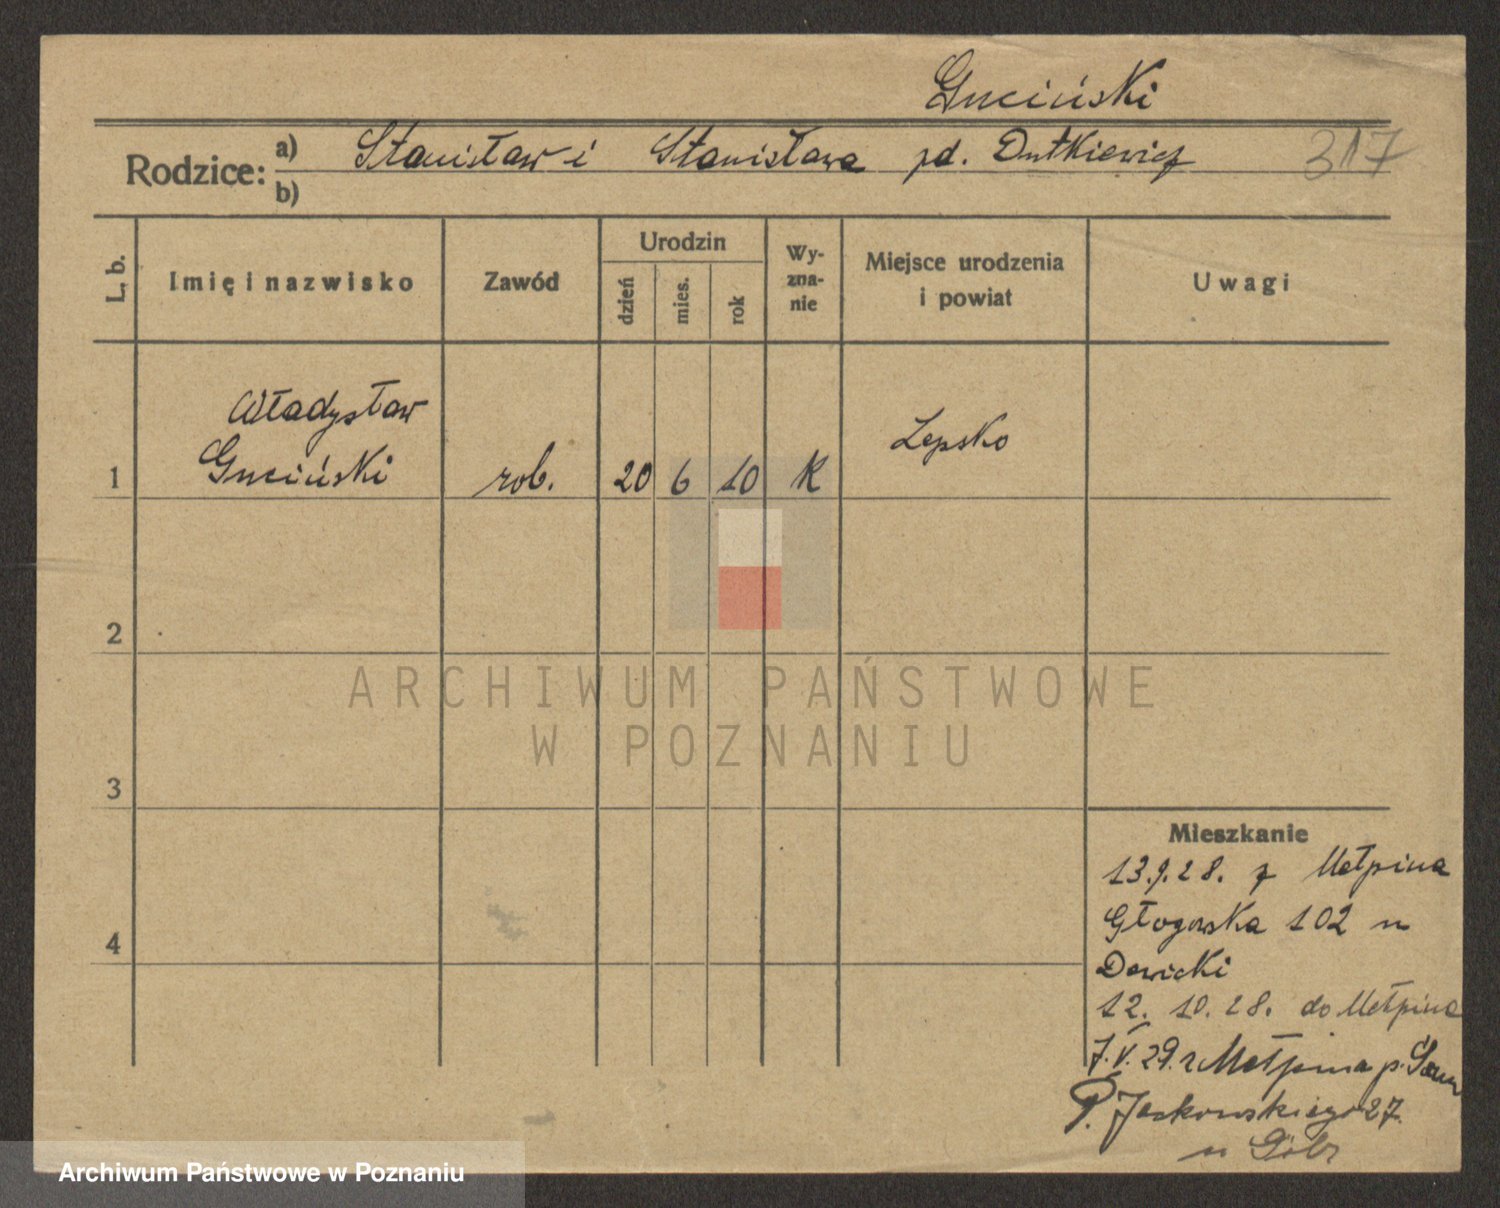 Guciński
Rodzice: a) Stanisław i Stanisława zd. Dutkiewicz
b)
317
L. b.
Imię i nazwisko
Zawód
Urodzin
dzień
mies.
rok
Wy-
zna-
nie
Miejsce urodzenia
i powiat
Uwagi
Władysław
1 Guciński rob. 20 6 10 K Lepsko
2
3
4
ARCHIWUM PAŃSTWOWE
W POZNANIU
Mieszkanie
13.9.28. z Małpina
Głogowska 102 u
Dewicki
12. 10. 28. do Małpina
7.V.29. z Małpina p. Śrem
P. Jackowskiego 27.
u
Archiwum Państwowe w Poznaniu